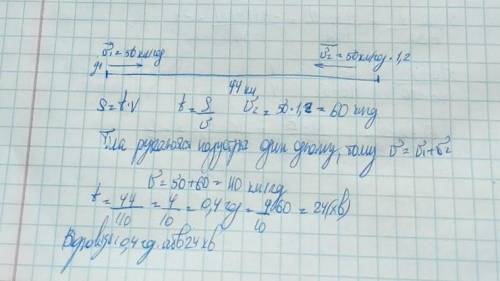 v₁ = 50 км/год v₂ = 50 км/год · 1,2
44 км
S = t · v t = S/v v₂ = 50 · 1,2 = 60 км/год
Тіла рухаються назустріч один одному, тому v = v₁ + v₂
v = 50 + 60 = 110 км/год
t = 44/110 = 4/10 = 0,4 год = 4·60/10 = 24 (хв)
Відповідь: 0,4 год. або 24 хв